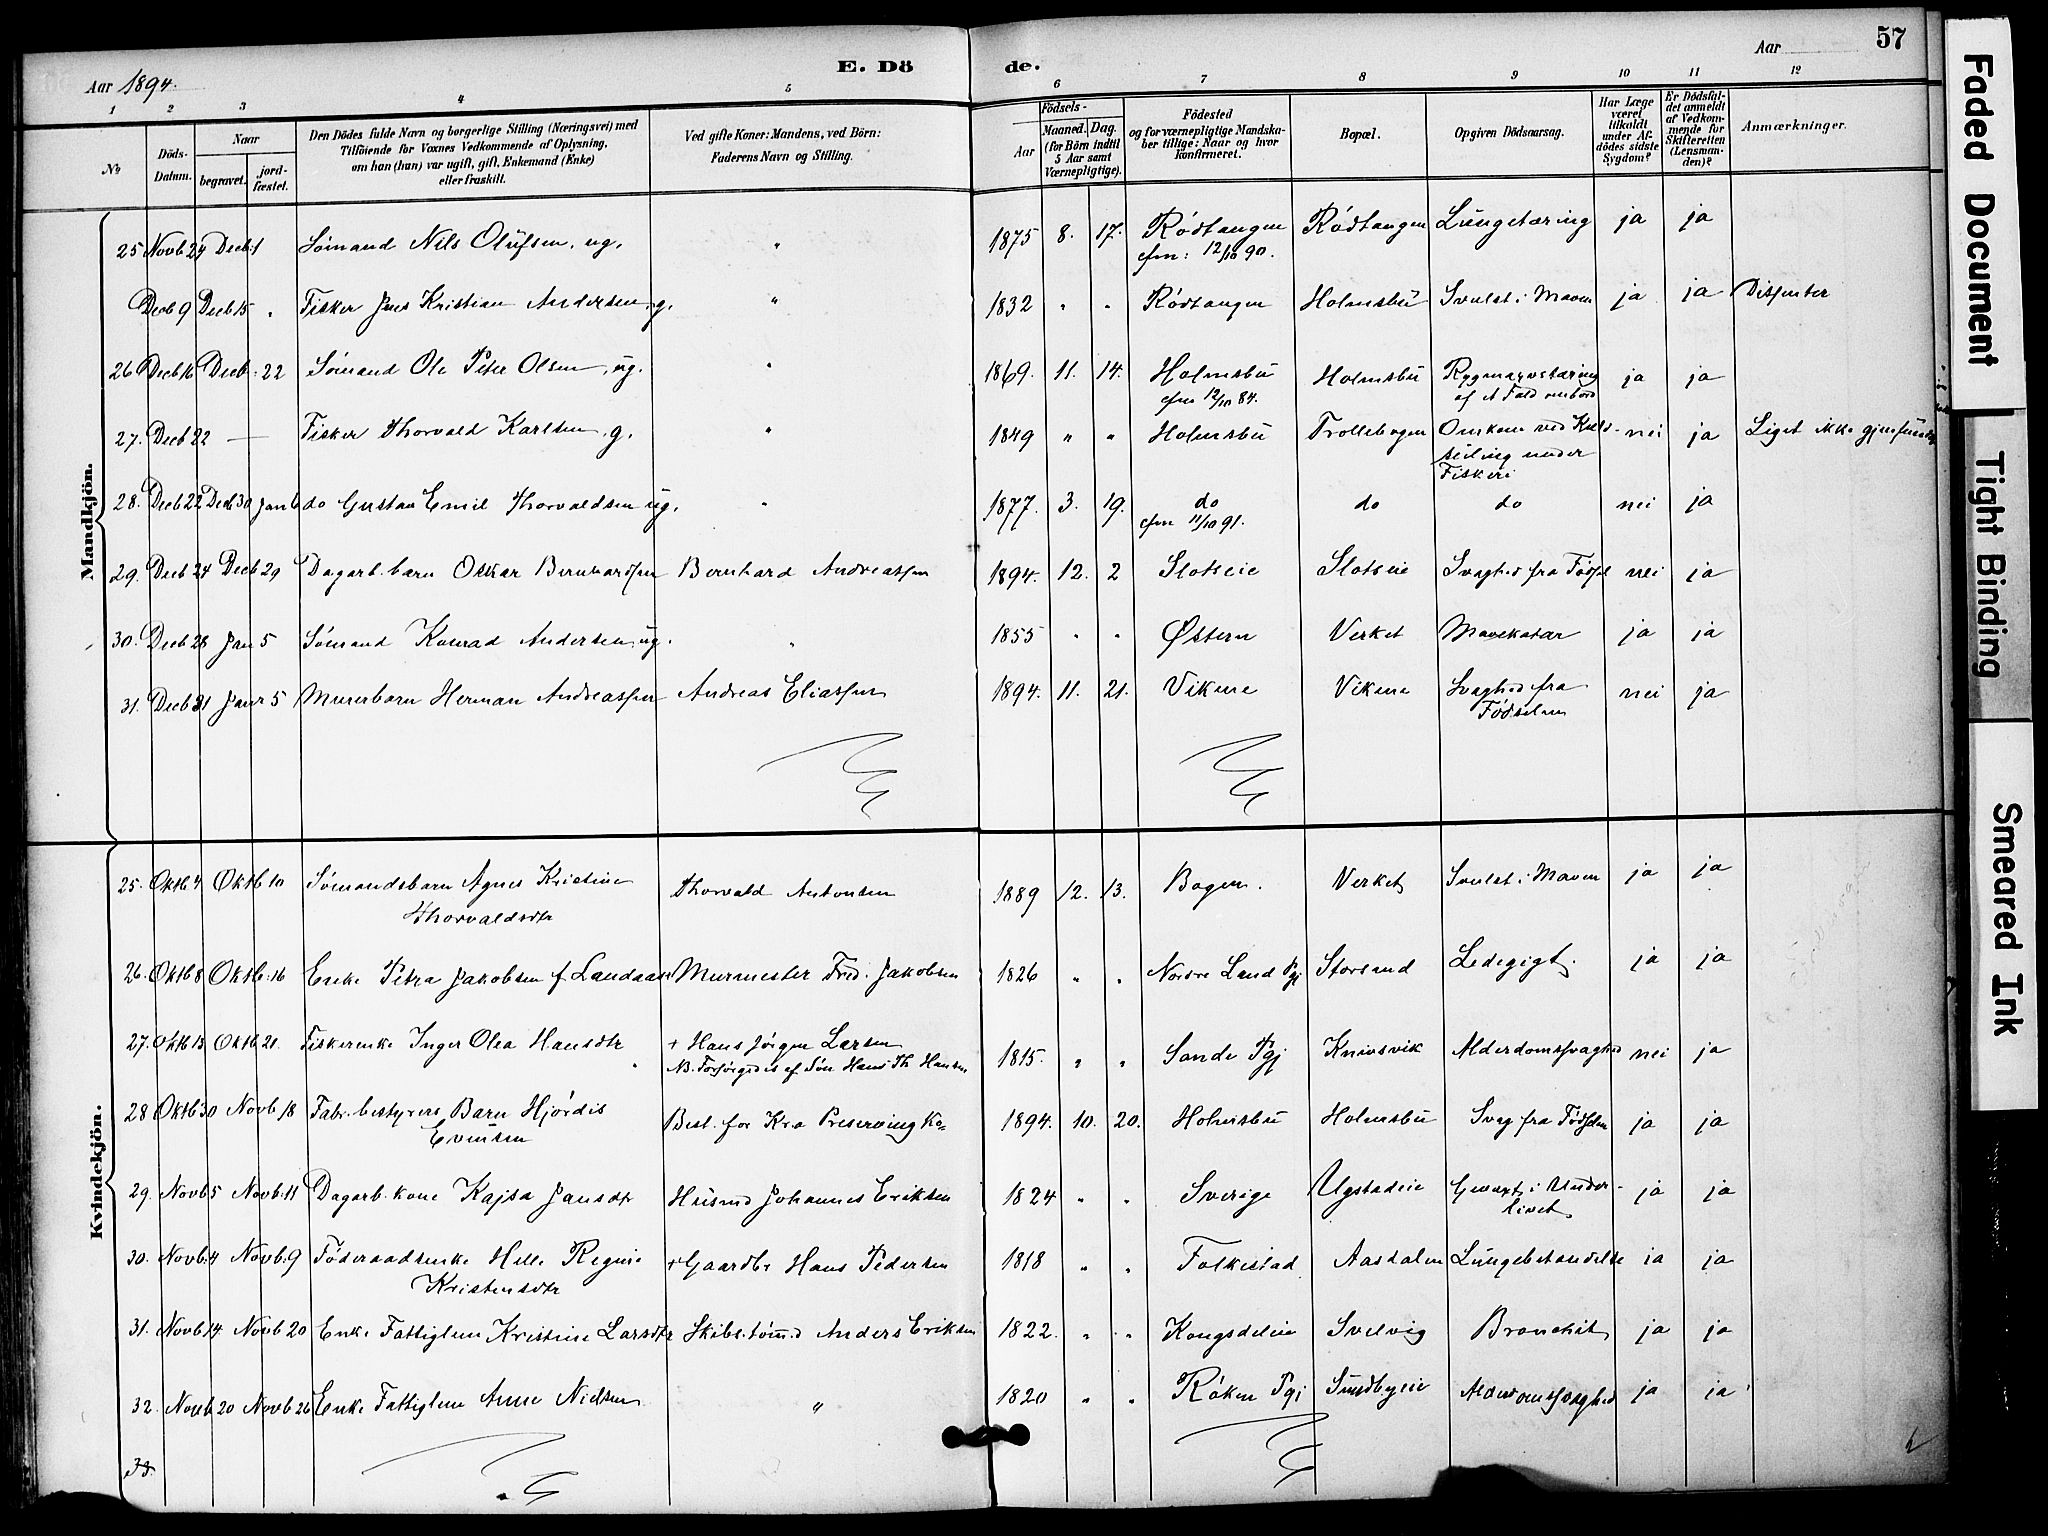 Aar 1894.
E. Dö
de.
Aar
57
1 2 3 4 5 6 7 8 9 10 11 12
No
Döds-Datum.
Naar
begravet.
jord-fæstet.
Den Dödes fulde Navn og borgerlige Stilling (Næringsvei) med
Tilföiende for Voxnes Vedkommende af Oplysning,
om han (hun) var ugift, gift, Enkemand (Enke)
eller fraskilt.
Ved gifte Koner: Mandens, ved Börn:
Faderens Navn og Stilling.
Födsels-
Aar
Maaned. Dag.
(for Börn indtil
5 Aar samt
Værnepligtige).
Födested
og for værnepligtige Mandska-
ber tillige: Naar og hvor
konfirmeret.
Bopæl.
Opgiven Dödsaarsag.
Har Læge
været
tilkaldt
under Af-
dödes sidste
Sygdom?
Er Dödsfal-
det anmeldt
af Vedkom-
mende for
Skifteretten
(Lensman-
den)?
Anmærkninger.
Mandkjön.
25 Novb 24 Decb 1 Sømand Nils Olufsen, ug. " 1875 8. 17. Rødtangen Rødtangen Lungetæring ja ja
cfm: 12/10 90.
Decb 9 Decb 15 " Fisker Jens Kristian Andersen, g. " 1832 " " Rødtangen Holmsbu Svulst i Maven ja ja Disenter
26 Decb 16 Decb: 22 Sømand Ole Peter Olsen, ug. " 1869. 11. 14. Holmsbu Holmsbu Rygmarvstæring ja ja
cfm 12/10 84. af et Fald ombord
27. Decb 22 — Fisker Thorvald Karlsen, g. " 1849 " " Holmsbu Trollebogen Omkom ved Kuld- nei ja Liget ikke
seiling under
Fiskeri
28. Decb 22 Decb 30 Jan 6 do Gustav Emil Thorvaldsen ug. " 1877. 3. 19. do do do nei ja
cfm 11/10 91.
29. Decb 24 Decb 29 Dagarb. barn Oskar Bernhardsen Bernhard Andreassen 1894. 12. 2 Slotseie Slotseie Svaghed fra Fødsel nei ja
30. Decb 28 Jan 5 Sømand Konrad Andersen, ug. " 1855 " " Østern Verket Mavekatar ja ja
31. Decb 31 Janr 5 Murerbarn Herman Andreassen Andreas Eliassen 1894. 11. 21. Vikene Vikene Svaghed fra nei ja
Fødselen
Kvindekjön.
25. Oktb 4 Oktb 10 Sømandsbarn Agnes Kristine Thorvald Antonsen 1889 12. 13. Bogen. Verket Svulst i Maven ja ja
Thorvaldsdtr
26. Oktb 8 Oktb: 16 Enke Petra Jakobsen f. Landaas Murmester Fred. Jakobsen 1826 " " Nordre Land Pgj Storsand Ledegigt. ja ja
27. Oktb 13 Oktb 21. Fiskerenke Inger Olea Hansdtr + Hans Jørgen Larsen 1815. " " Sande Pgj Knivsvik Alderdomssvaghed nei ja
NB. Forsørgedes af Søn Hans Th Hansen
28 Oktb 30 Novb 18 Fabr. bestyrers Barn Hjørdis Best. for Kra Preserving Ko= 1894. 10. 20. Holmsbu Holmsbu Svag fra Fødslen ja ja
Evensen
29. Novb 5 Novb. 11 Dagarb. kone Kajsa Jansdtr Husmd Johannes Eriksen 1824 " " Sverige Ugstadeie Gevext i Under- ja ja
livet
30. Novb. 4 Novb. 9 Føderaadsenke Helle Regine + Gaardbr Hans Pedersen 1818 " " Folkestad Aasdalen Lungebetændelse ja ja
Kristensdtr
31. Novb 14 Novb 20 Enke Fattiglem Kristine Larsdtr Skibstømd Anders Eriksen 1822. " " Kongsdeleie Svelvig Bronchit ja ja
32. Novb 20 Novb 26 Enke Fattiglem Anne Nielsen " 1820 " " Røken Pgj Sundbyeie Alderdomssvaghed ja ja
33.
Faded Document
Tight Binding
Smeared Ink